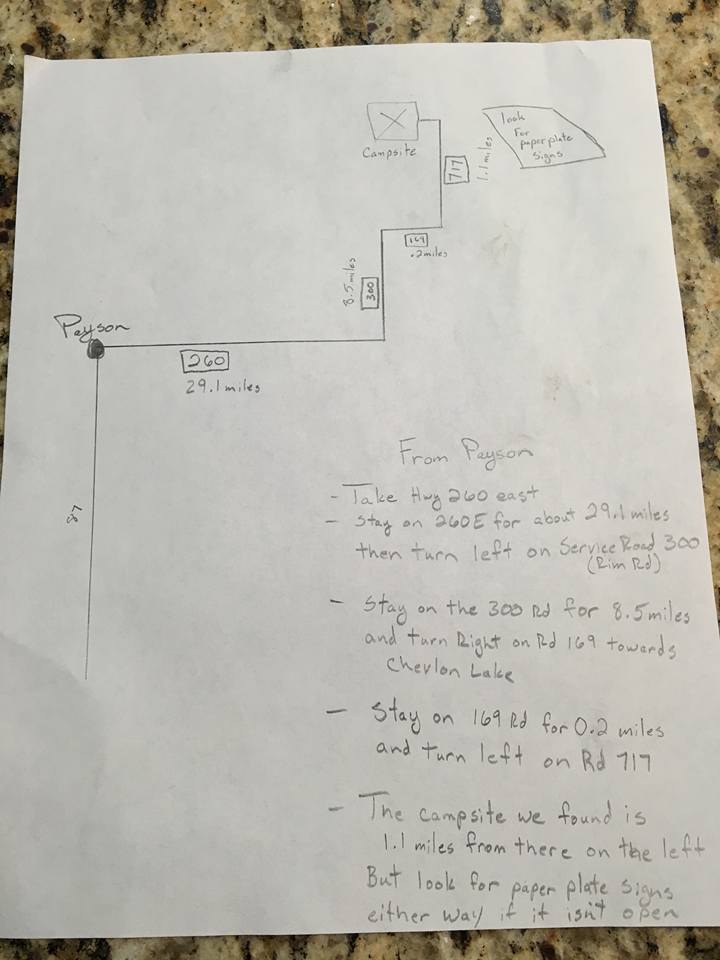 look
For
paper plate
signs
Campsite
717
1.1 miles
169
.2 miles
8.5 miles
300
Payson
260
29.1 miles
87
From Payson
- Take Hwy 260 east
- Stay on 260E for about 29.1 miles
then turn left on Service Road 300
(Rim Rd)
- Stay on the 300 Rd for 8.5 miles
and turn Right on Rd 169 towards
Chevlon Lake
- Stay on 169 Rd for 0.2 miles
and turn left on Rd 717
- The campsite we found is
1.1 miles from there on the left
But look for paper plate signs
either way if it isn't open